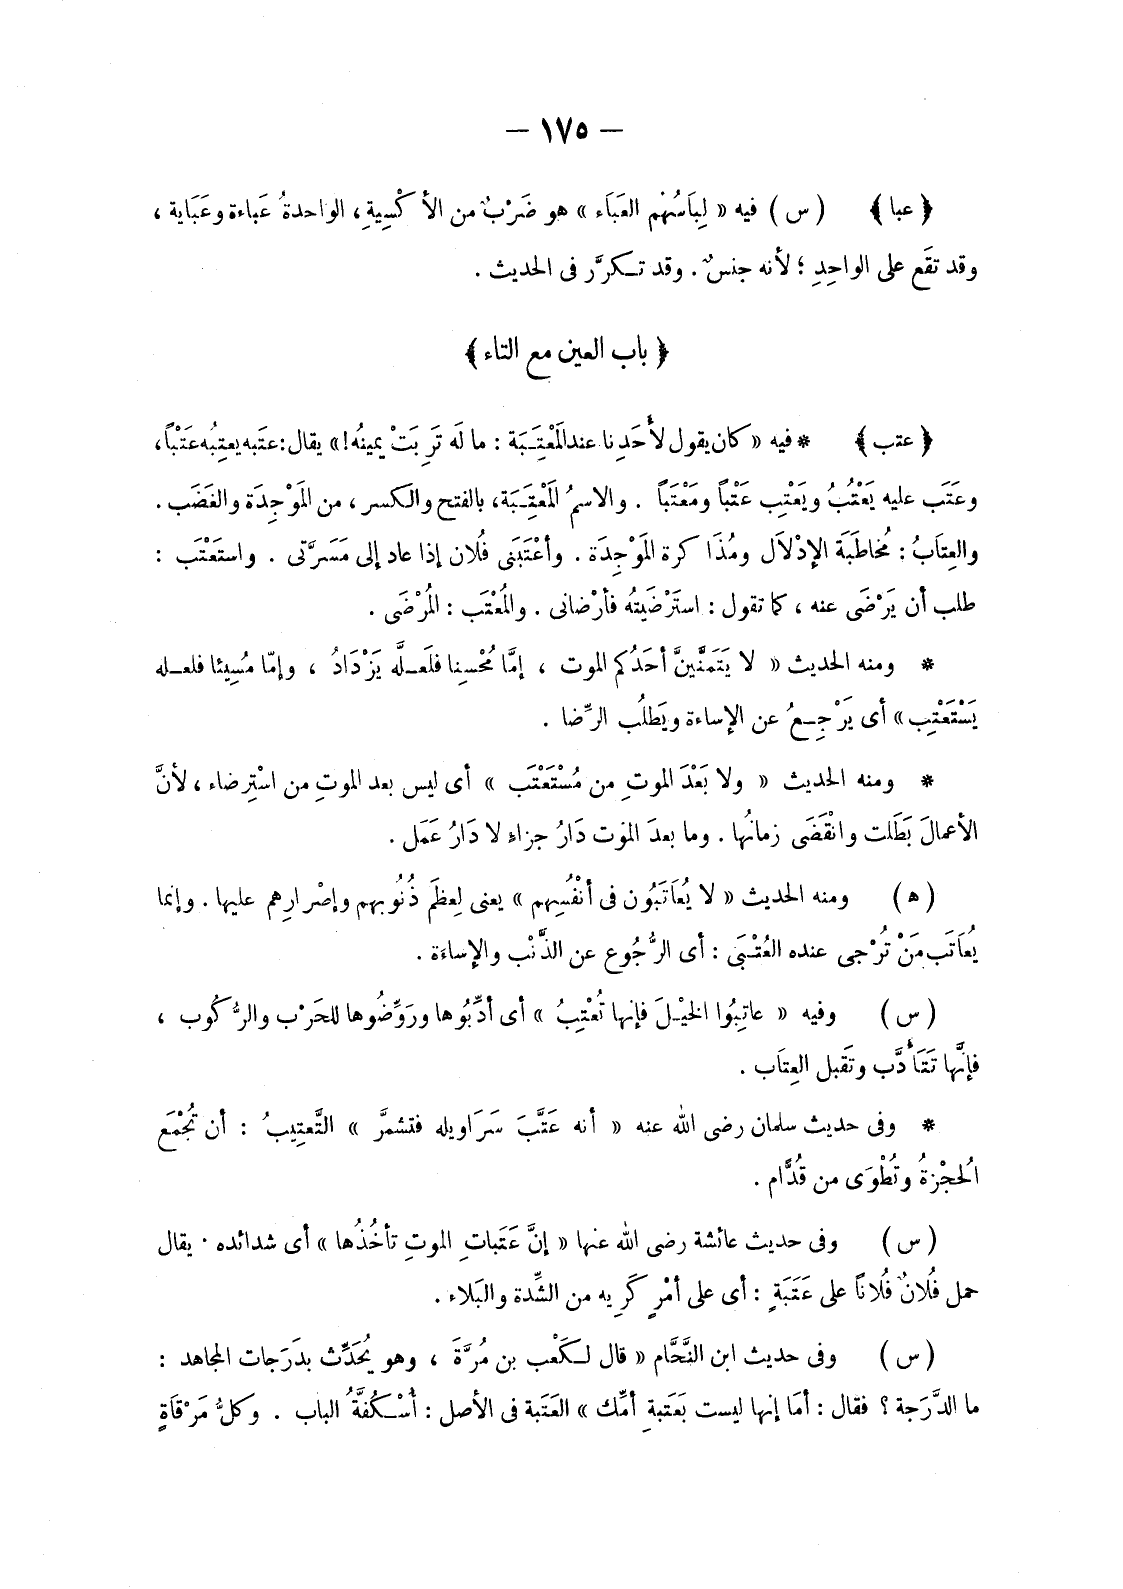 — ١٧٥ —
﴿ عبا ﴾ ( س ) فيه « لِبَاسُهُم العَبَاء » هو ضَرْبٌ من الأكْسِيةِ ، الواحدةُ عَباءة وعَبَاية ،
وقد تقَع على الواحِدِ ؛ لأنه جنسٌ . وقد تكرَّر فى الحديث .
﴿ باب العين مع التاء ﴾
﴿ عتب ﴾ * فيه « كان يقول لأحَدِنا عند المَعْتِبَة : ما لَه تَرِبَتْ يمينُه ! » يقال : عتَبه يعتِبُه عَتْباً ،
وعَتَب عليه يَعْتُبُ ويَعْتِب عَتْباً ومَعْتَباً . والاسمُ المَعْتِبَة ، بالفتح والكسر ، من المَوْجِدَة والغَضَب .
والعِتابُ : مُخاطَبَة الإدْلال ومُذَاكرة المَوْجِدَة . وأعْتَبَنى فُلان إذا عاد إلى مَسَرَّتى . واستَعْتَب :
طلب أن يَرْضَى عنه ، كما تقول : استَرْضَيتُه فأرْضانى . والمُعْتَب : المُرْضَى .
* ومنه الحديث « لا يَتَمنَّينَّ أحَدُكم الموت ، إمَّا مُحْسِنا فلَعلَّه يَزْدَادُ ، وإمّا مُسِيئا فلعله
يَسْتَعْتِب » أى يَرْجِعُ عن الإساءة ويَطلُب الرِّضا .
* ومنه الحديث « ولا بَعْدَ الموتِ من مُسْتَعْتَب » أى ليس بعد الموتِ من اسْتِرضاء ، لأنَّ
الأعمالَ بَطَلت وانْقَضَى زمانُها . وما بعدَ المَوْت دَارُ جزاءٍ لا دَارُ عَمَل .
( ه ) ومنه الحديث « لا يُعَاتَبُون فى أنْفُسِهم » يعنى لِعظَم ذُنُوبهم وإصْرارِهم عليها . وإنما
يُعَاتَب مَنْ تُرْجى عنده العُتْبَى : أى الرُّجُوع عن الذَّنْب والإساءَة .
( س ) وفيه « عاتِبُوا الخيْلَ فإنها تُعْتِبُ » أى أدِّبُوها ورَوِّضُوها للحَرْب والرُّكُوب ،
فإنَّها تَتَأدَّب وتَقبل العِتَاب .
* وفى حديث سلمان رضى الله عنه « أنه عَتَّبَ سَرَاويله فتشمَّر » التَّعتِيبُ : أن تُجْمَع
الُحجْزةُ وتُطْوَى من قُدَّام .
( س ) وفى حديث عائشة رضى الله عنها « إنَّ عَتَباتِ الموتِ تأخُذُها » أى شدائده . يقال
حمل فُلانٌ فُلاناً على عَتَبَةٍ : أى على أمْرٍ كَرِيه من الشِّدة والبَلاء .
( س ) وفى حديث ابن النَّحَّام « قال لكَعْب بن مُرَّةَ ، وهو يُحَدِّث بدَرَجات المجاهد :
ما الدَّرَجة ؟ فقال : أمَا إنها ليست بَعَتبةِ أمِّك » العَتَبة فى الأصل : أُسْكُفَّةُ الباب . وكلُّ مَرْقاةٍ